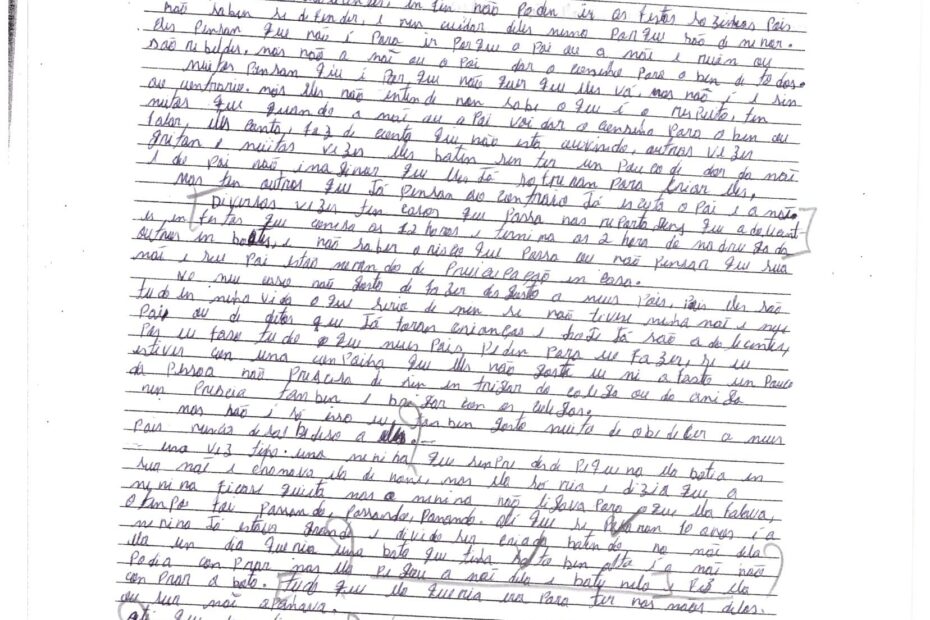 in fin não poden ir as festas sozinhos Pais
não saben se defender, e nen cuidar deles mesmo Porque são de menor.
Eles Pensan que não é Para ir Porque o Pai ou a mãe é ruim ou
são rebeldes, mas não a mãe ou o Pai dar o conselho Para o ben de todos.
muitos Pensan que é Por que não quer que eles vá, mas não é é sin
ao contrario. mais eles não intende nen sabe o que é o respeito, ten
muitos que quando a mãe ou a Pai vai dar o consino Para o ben ou
falar, eles canta, faz de conta que não esta ouvindo, outros vezes
gritan e muitas vezes eles baten sen ter un Pouco di dor da mãe
e do Pai não imaginar que eles Já sofreran Para criar eles,
mas ten outros que Já Pensan ao contrario Já escuta o Pai e a mãe.
Diversas vezes tin casos que Passa nas reportagens que adolecent-
es in festas que comesa as 12 horas e termina as 2 hora da madrugada
outros in bares, e não saber o risco que Passa ou não Pensan que sua
mãe e seu Pai estão morendo de Preucupação in casa.
No meu casso não gosto de fazer desgosto a meus Pais, Pois eles são
tudo en minha vida o que seria de min se não tivese minha mãe e meu
Pais ou de ditos que Já foran crianças e hoje Já são adolecentes,
Pos eu faso tudo o que meus Pais Peden Para eu fazer, se eu
estiver con uma conpanha que eles não gosta eu mi afasto un Pouco
da Pessoa não Precisa de sin intrigar do colega ou da amiga
nen Precisa tanben e brigar con os colegas,
mas não é só isso eu tanben gosto muito de obedecer a meus
Pais nunca desobediso a eles.
uma vez tipo. uma menina que senpre desde Pequena ela batia in
sua mãe e chamava ela di nome, mas ela só ria, e dizia que a
menina ficase quieta mas a menina não ligava Para o que ela falava,
o tenpo foi Passando, Passando, Pasando. Ate que se Pasaran 10 anos é a
menina Já estava grande e divido ser criada batendo na mãe dela
ela un dia queria uma bota que tinha salto ben alta é a mãe não
Podia conPrar mas ela Pegou a mãe dela e bateu nela e Fez ela
conPrar a bota. Tudo que ela queria era Para ter nas maos delas.
ou sua mãe apanava.